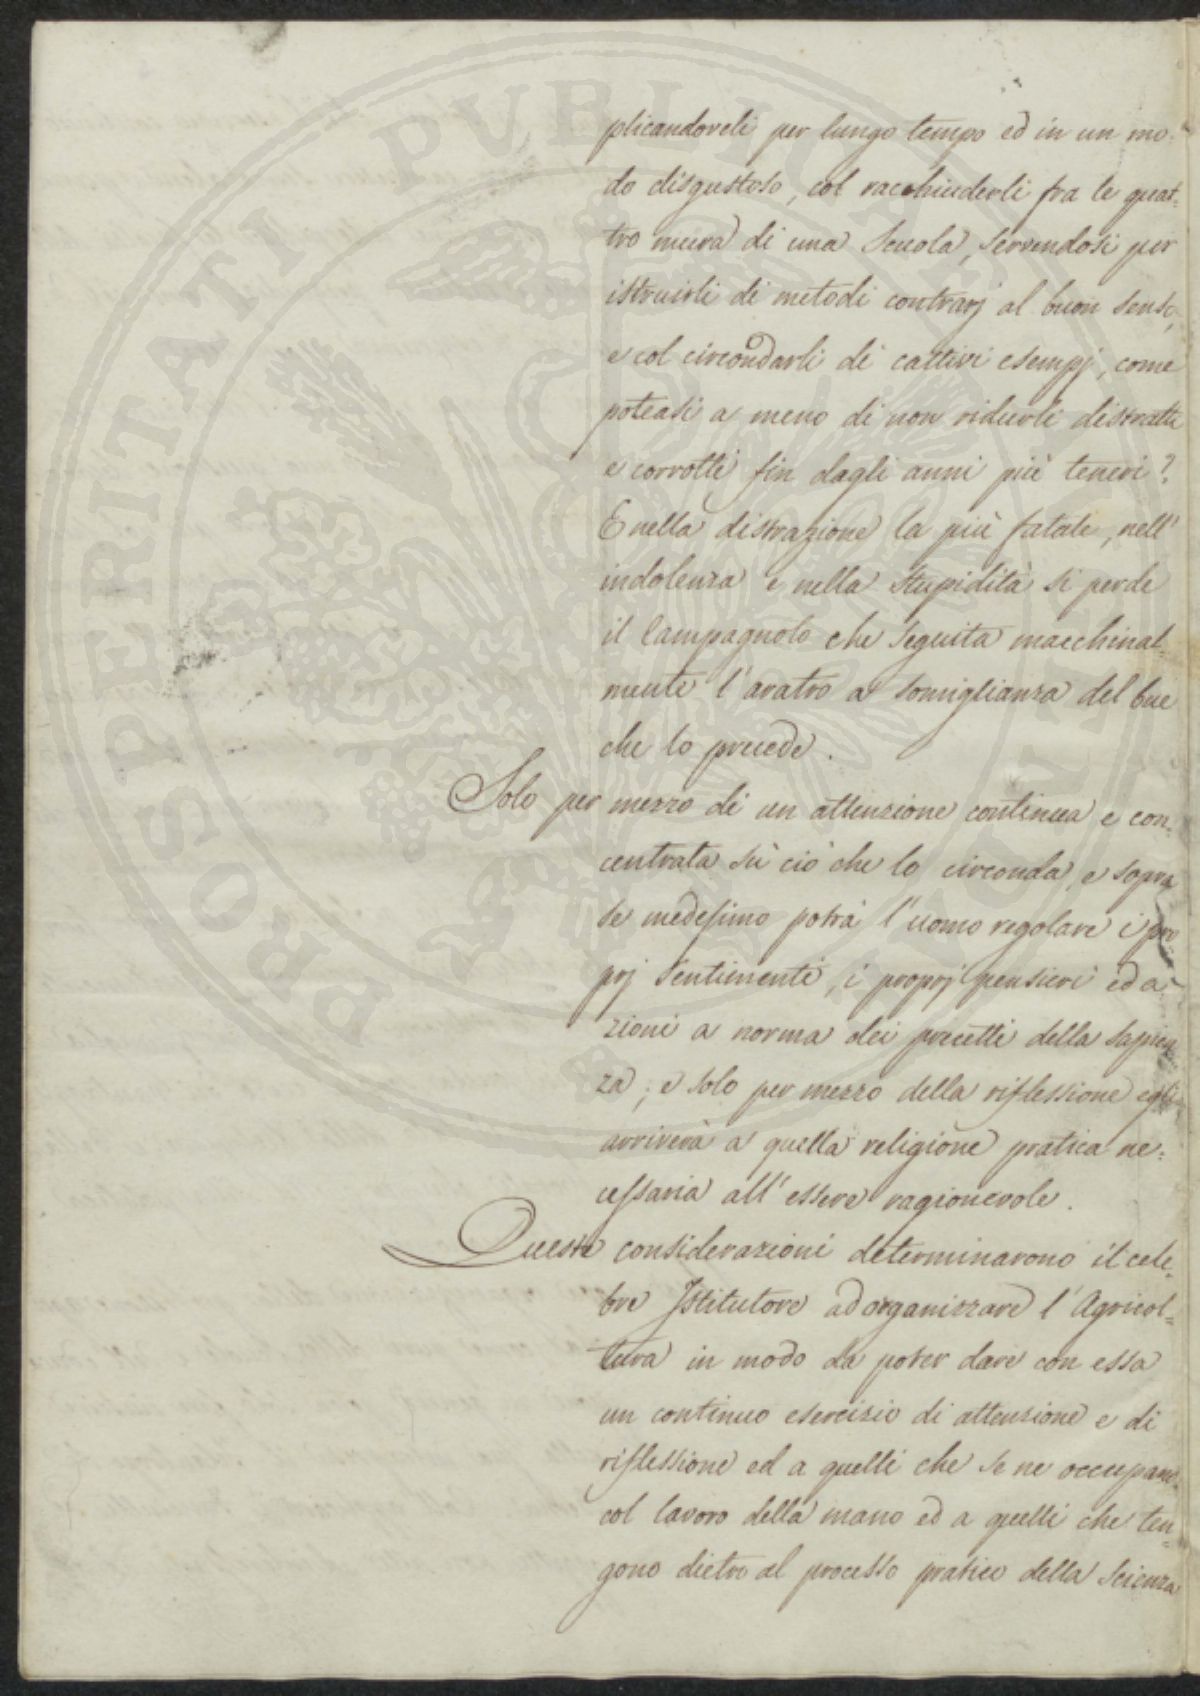 plicandoveli per lungo tempo ed in un mo-
do disgustoso, col racchiuderli fra le quat=
tro mura di una Scuola, servendosi per
istruirli di metodi contrarj al buon senso,
e col circondarli di cattivi esempj, come
poteasi a meno di non ridurli distratti
e corrotti fin dagli anni più teneri?
E nella distrazione la più fatale, nell'
indolenza e nella stupidità si perde
il Campagnolo che seguita macchinal=
mente l'aratro a somiglianza del bue
che lo precede.
Solo per mezzo di un attenzione continua e con=
centrata sù ciò che lo circonda, e sopra
se medesimo potrà l'uomo regolare i pro
prj sentimenti, i proprj pensieri ed a-
zioni a norma dei precetti della sapien
za; e solo per mezzo della riflessione egli
arriverà a quella religione pratica ne=
cessaria all'essere ragionevole.
Queste considerazioni determinarono il cele=
bre Istitutore ad organizzare l'Agricol=
tura in modo da poter dare con essa
un continuo esercizio di attenzione e di
riflessione ed a quelli che se ne occupano
col lavoro della mano ed a quelli che ten=
gono dietro al processo pratico della Scienza
PROSPERITATI PUBLICAE